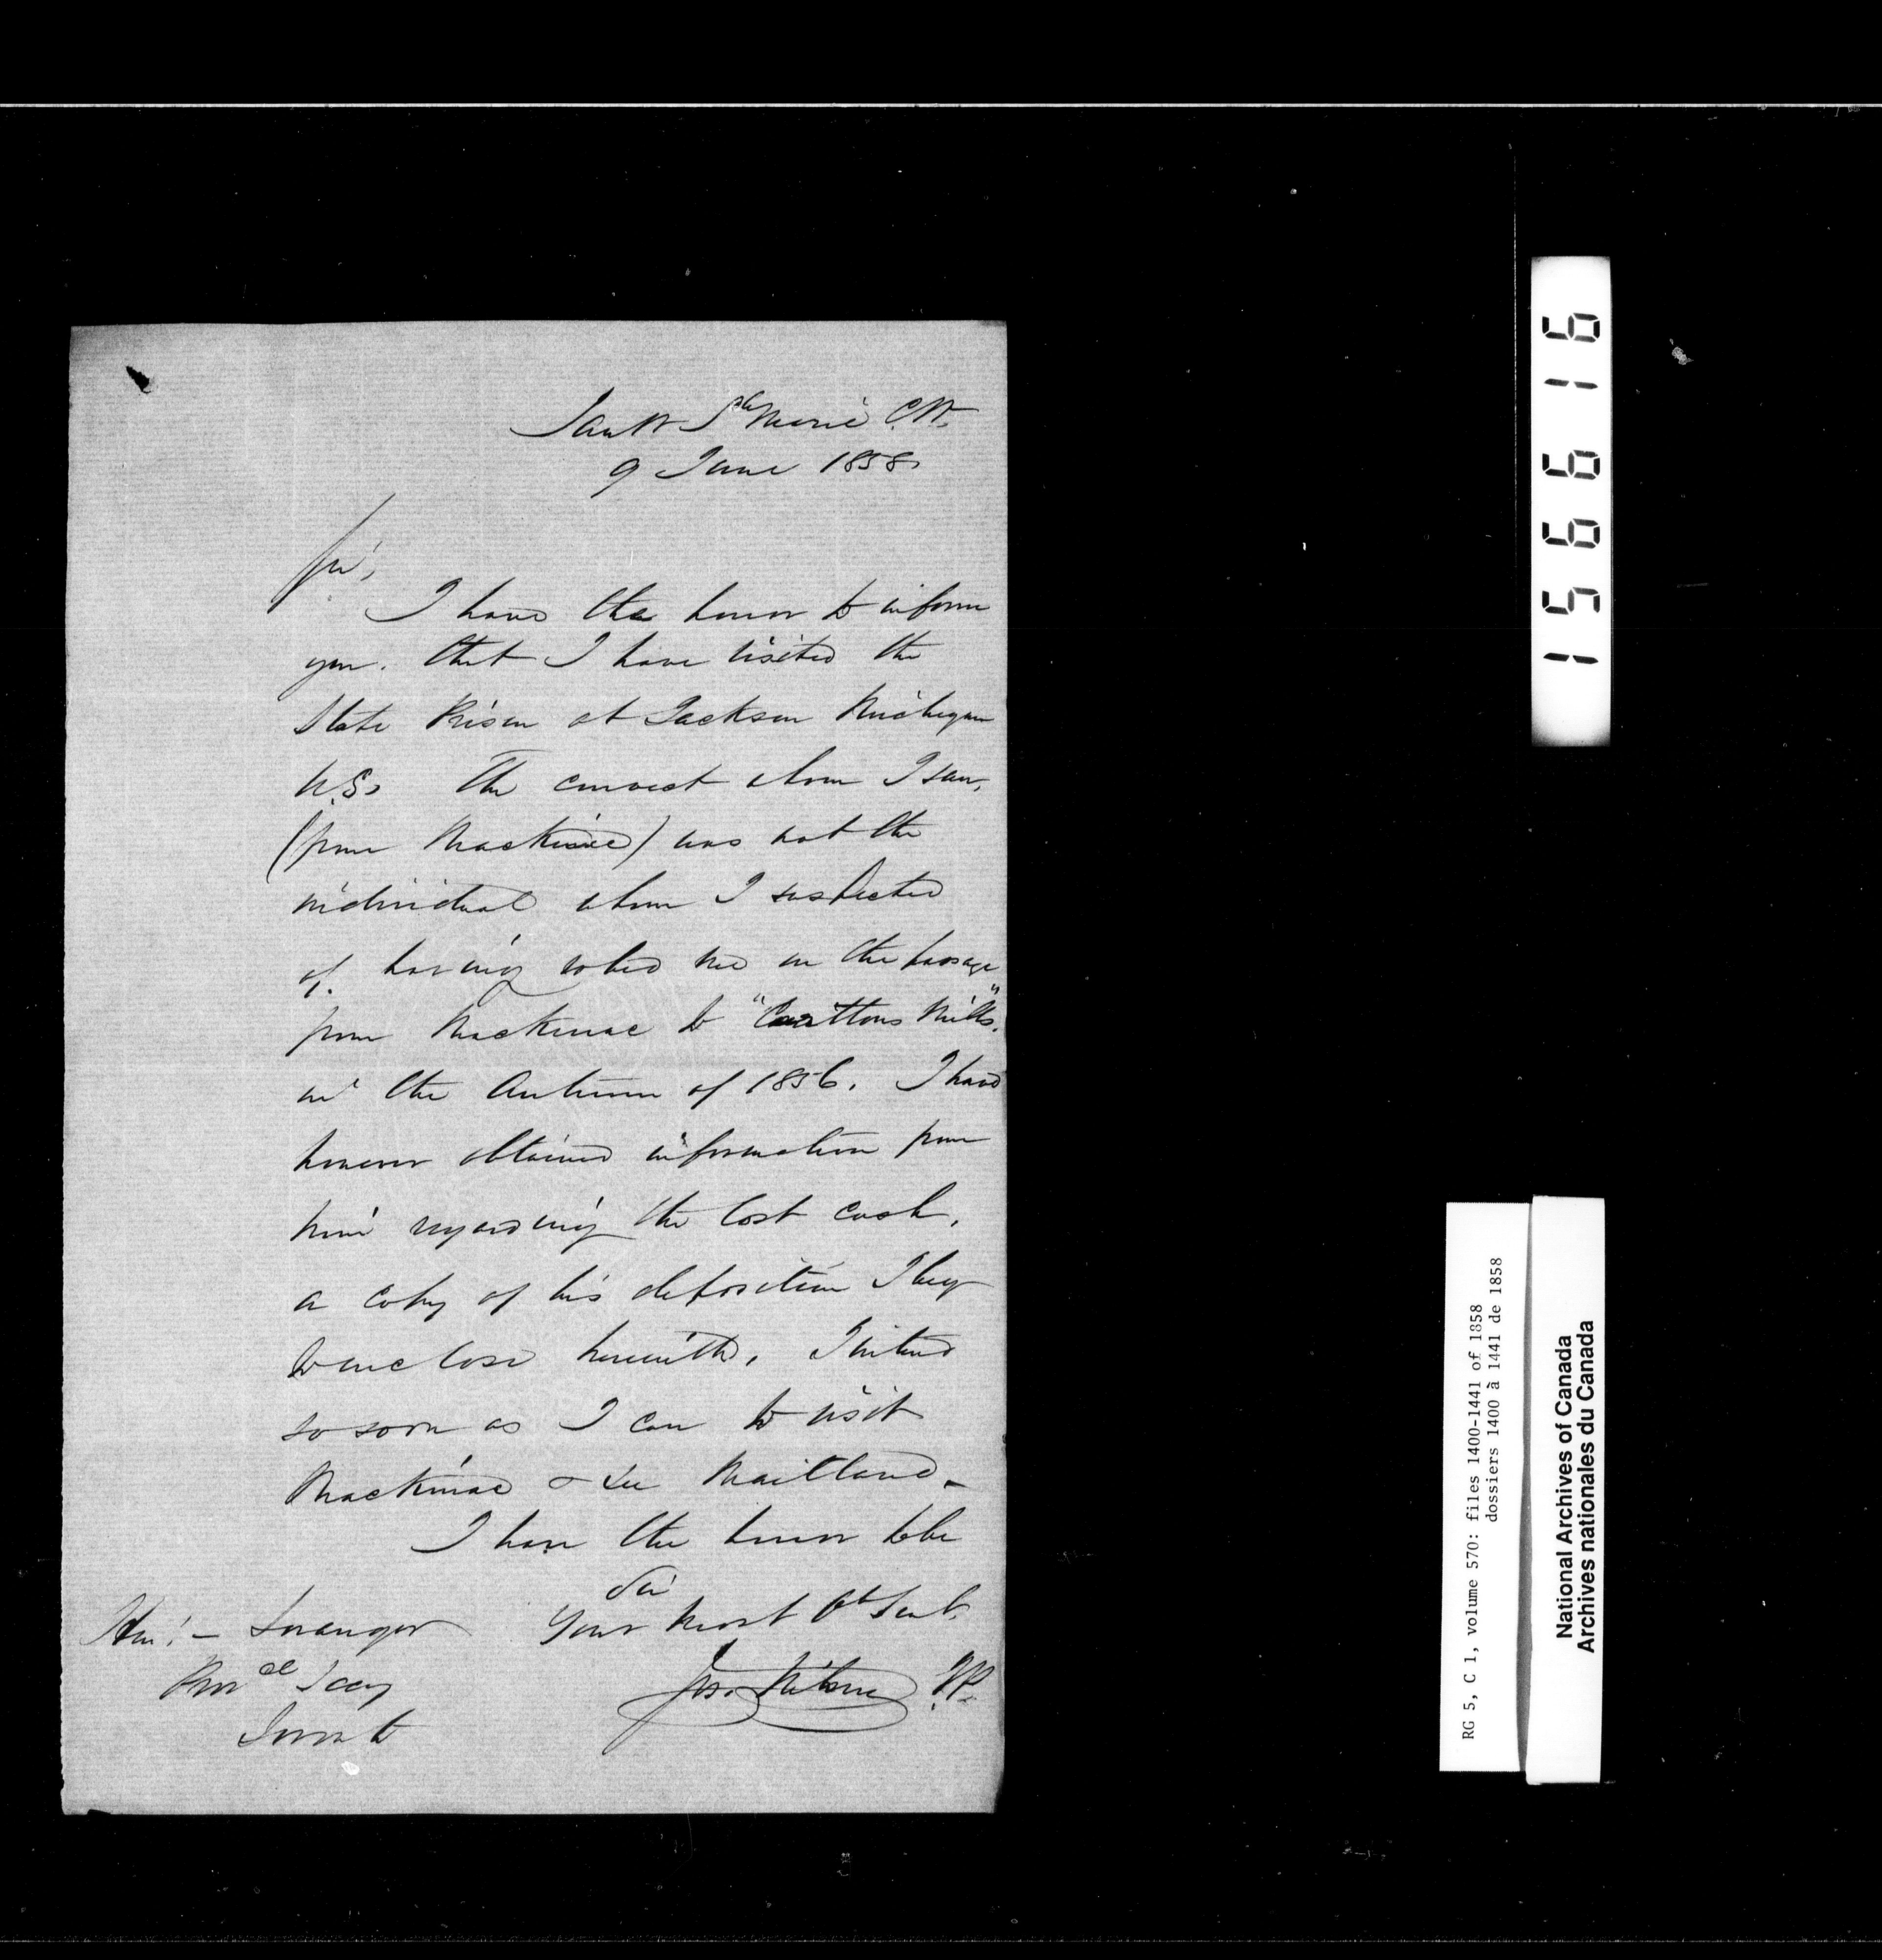 Sault Ste Marie C.W.
9 June 1858
Sir,
I have the honor to inform
you that I have visited the
State Prison at Jackson Michigan
U.S. The convict whom I saw,
(from Mackinac) was not the
individual whom I suspected
of having robed me on the passage
from Mackinac to " Mills"
in the Autumn of 1856. I have
however obtained information from
him regarding the lost cash,
a copy of his deposition I beg
to enclose herewith. I intend
so soon as I can to visit
Mackinac & see Maitland.
I have the honor to be
Sir
Your most Obt Servt.
Jos. Wilson J.P.
Hon: – Loranger
Provcl Secy
Toronto
156616
RG 5, C 1, volume 570: files 1400-1441 of 1858
dossiers 1400 à 1441 de 1858
National Archives of Canada
Archives nationales du Canada